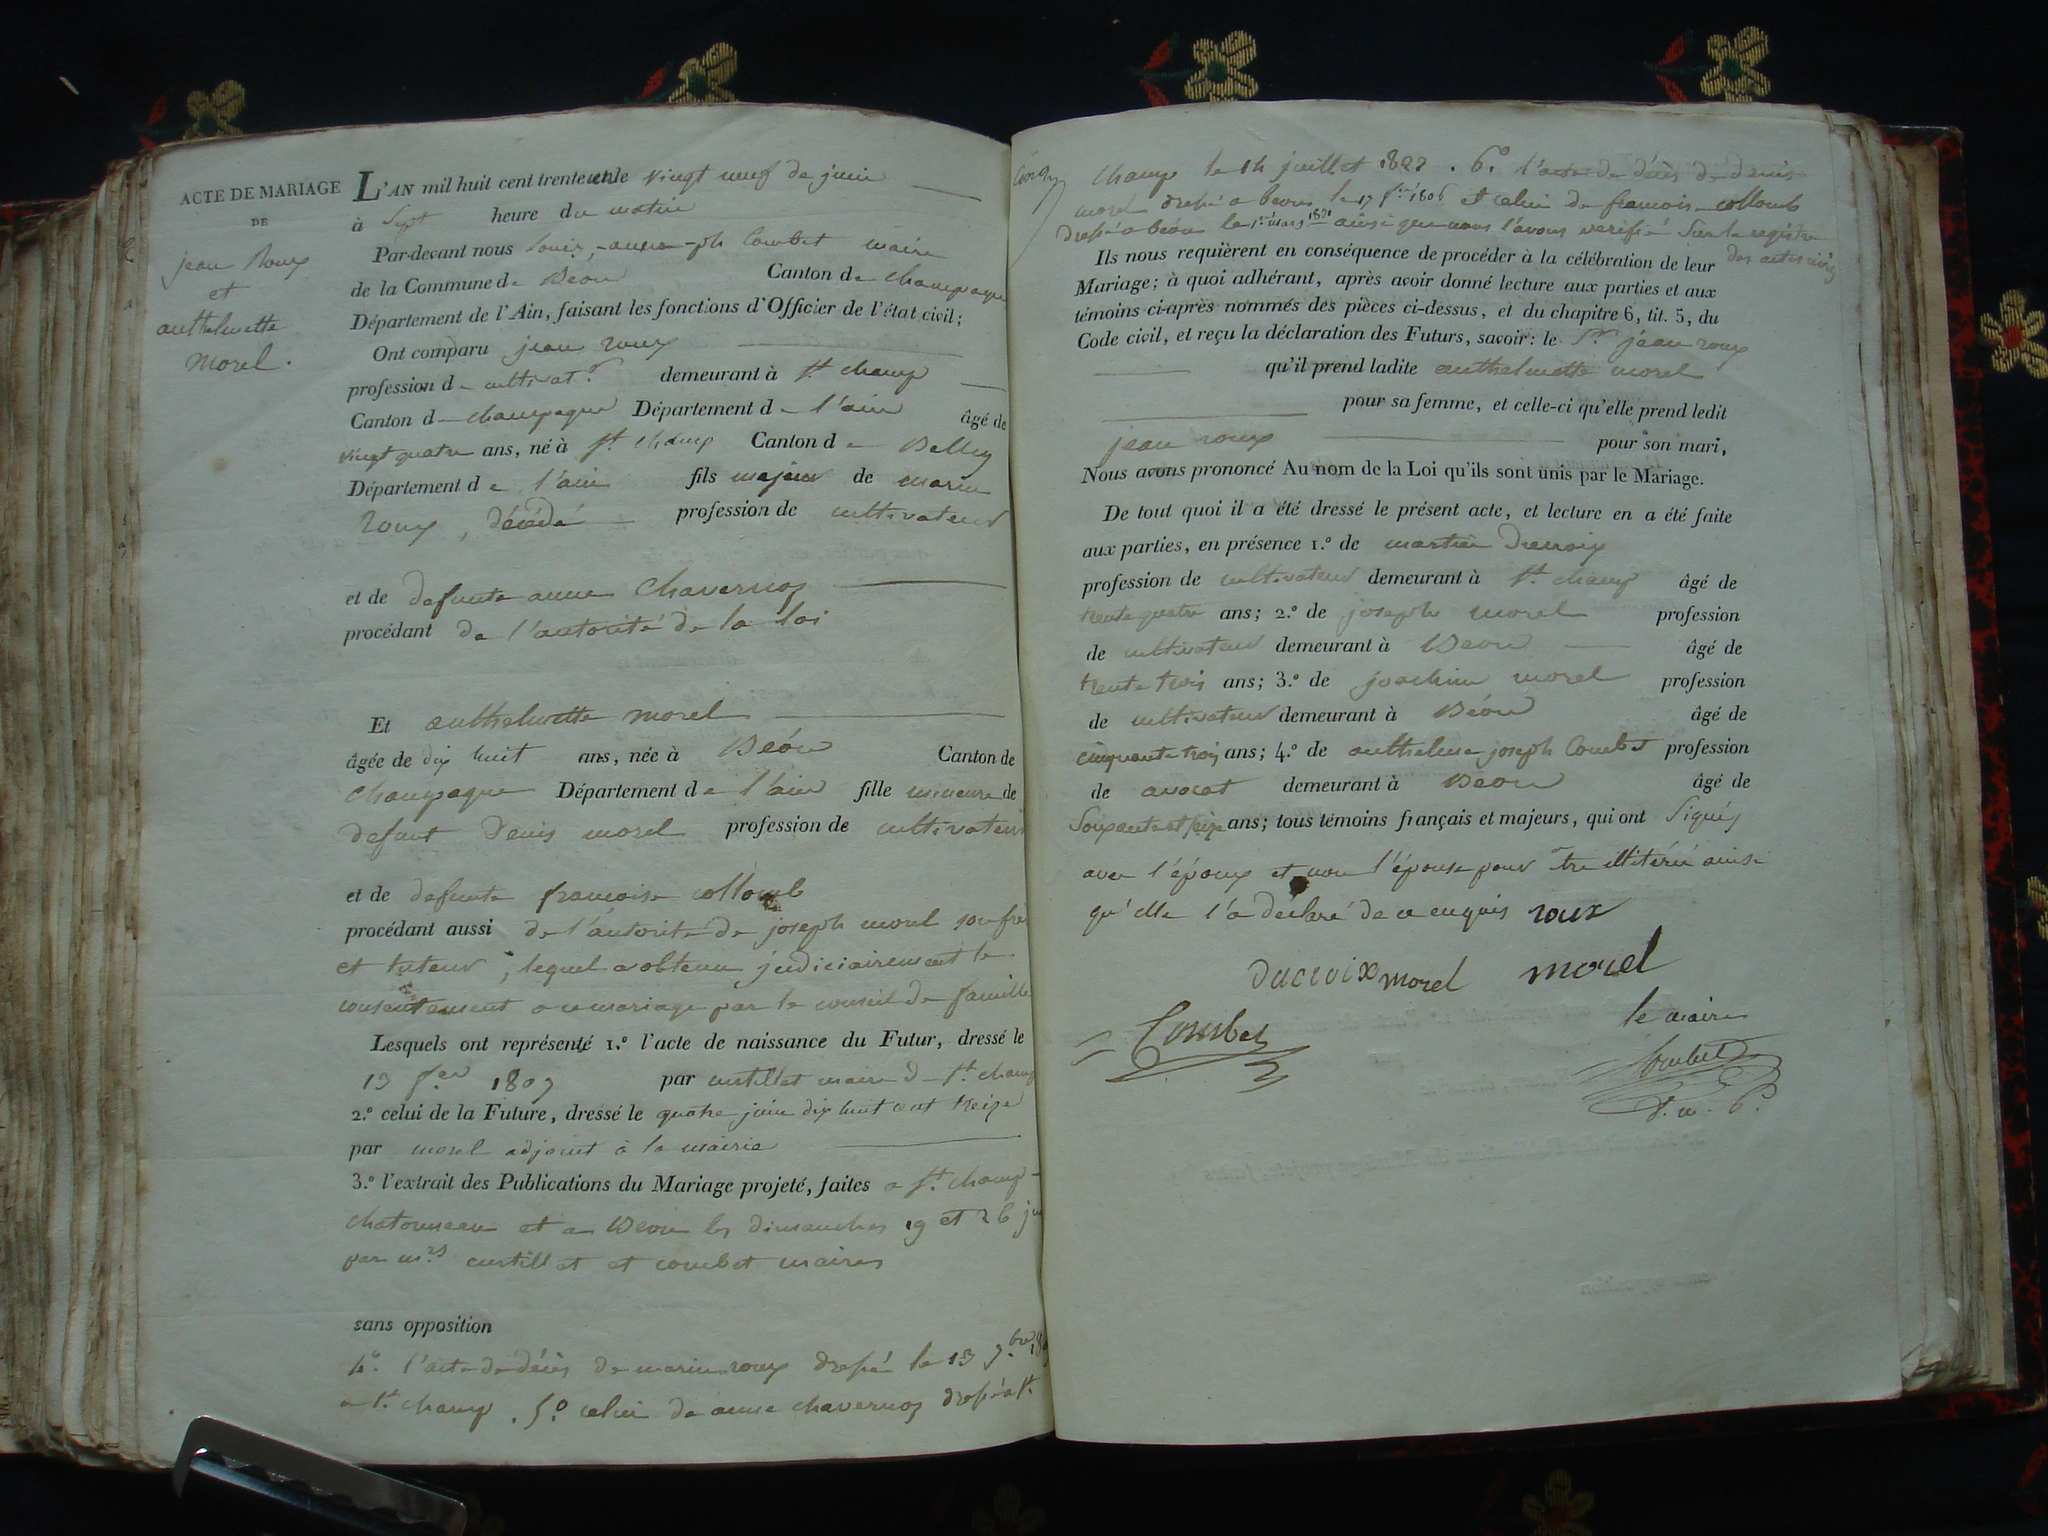 ACTE DE MARIAGE
DE
jean Roux
et
anthelmette
morel.
L'AN mil huit cent trente un le vingt neuf de juin
à Sept heure du matin
Par-devant nous Louis, ph Combet maire
de la Commune de Beon Canton de champagne
Département de l'Ain, faisant les fonctions d'Officier de l'état civil;
Ont comparu jean roux
profession de cultivat.r demeurant à St champ
Canton de champagne Département de l'ain âgé de
vingt quatre ans, né à St champ Canton de Belley
Département de l'ain fils majeur de marin
Roux, décédé profession de cultivateur
et de defunte anne Chavernoz
procédant de l'autorité de la loi
Et anthelmette morel
âgée de dix huit ans, née à Béon Canton de
Champagne Département de l'ain fille mineure de
defunt Denis morel profession de cultivateur
et de defunte francoise collomb
procédant aussi de l'autorité de joseph morel son frè
et tuteur, lequel a obtenu judiciairement le
consentement a ce mariage par le conseil de famille
Lesquels ont représenté 1.º l'acte de naissance du Futur, dressé le
13 1807 par curtillet maire de St champ
2.º celui de la Future, dressé le quatre juin dix huit cent treize
par morel adjoint à la mairie
3.º l'extrait des Publications du Mariage projeté, faites a St. champ
chatonneau et a Beon les dimanches 19 et 26 ju
par mrs curtillet et combet maires
sans opposition
4º. l'acte de décès de marin roux dressé le 13 bre
a St champ. 5.º celui de anne chavernoz dressé a St
champ le 14 juillet 1822. 6.º l'acte de décès de denis
morel dressé a beon le 17 et celui de francoise collomb
dressé a béon le 1er mars ainsi que nous l'avons verifié sur le registre
des actes civils
Ils nous requièrent en conséquence de procéder à la célébration de leur
Mariage; à quoi adhérant, après avoir donné lecture aux parties et aux
témoins ci-après nommés des pièces ci-dessus, et du chapitre 6, tit. 5, du
Code civil, et reçu la déclaration des Futurs, savoir: le Sr. jean roux
qu'il prend ladite anthelmette morel
pour sa femme, et celle-ci qu'elle prend ledit
jean roux pour son mari,
Nous avons prononcé Au nom de la Loi qu'ils sont unis par le Mariage.
De tout quoi il a été dressé le présent acte, et lecture en a été faite
aux parties, en présence 1.º de martin Ducroix
profession de cultivateur demeurant à St champ âgé de
trente quatre ans; 2.º de joseph morel profession
de cultivateur demeurant à Beon âgé de
trente trois ans; 3.º de joachim morel profession
de cultivateur demeurant à Béon âgé de
cinquante trois ans; 4.º de anthelme joseph Combet profession
de avocat demeurant à Beon âgé de
Soixante et seize ans; tous témoins français et majeurs, qui ont Signés
avec l'époux et non l'épouse pour être illitéré ainsi
qu'elle l'a déclaré de ce enquis roux
ducroix morel morel
le maire
Combet
Combet